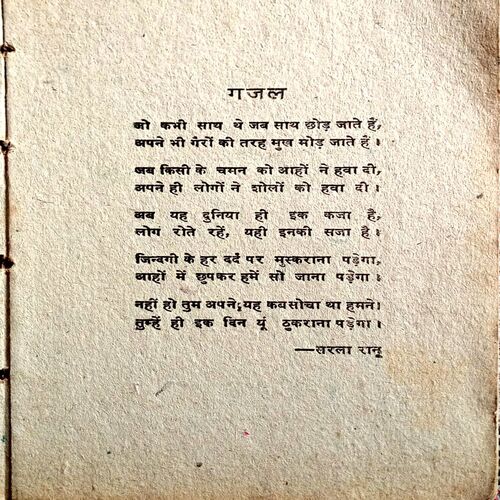 गजल
जो कभी साथ थे जब साथ छोड़ जाते हैं,
अपने भी गैरों की तरह मुख मोड़ जाते हैं।
जब किसी के चमन को आहों ने हवा दी,
अपने ही लोगों ने शोलों को हवा दी।
अब यह दुनिया ही इक कजा है,
लोग रोते रहें, यही इनकी सजा है।
जिन्दगी के हर दर्द पर मुस्कराना पड़ेगा,
आहों में छुपकर हमें सो जाना पड़ेगा।
नहीं हो तुम अपने; यह कब सोचा था हमने।
तुम्हें ही इक दिन यूं ठुकराना पड़ेगा।
—सरला रानू